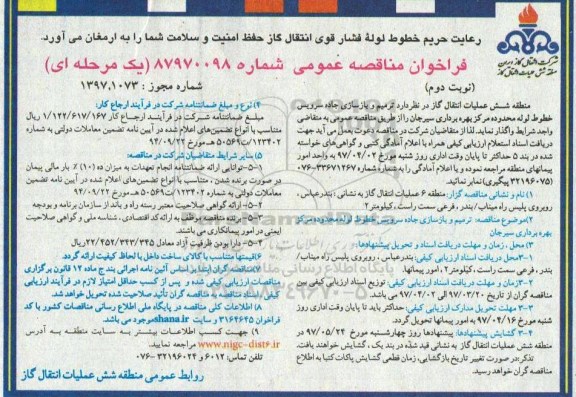 رعایت حریم خطوط لولهٔ فشار قوی انتقال گاز حفظ امنیت و سلامت شما را به ارمغان می آورد.
شرکت انتقال گاز ایران
منطقه شش عملیات انتقال گاز
فراخوان مناقصه عمومی شماره ۸۷۹۷۰۰۹۸ (یک مرحله ای)
(نوبت دوم)
شماره مجوز : ۱۳۹۷،۱۰۷۳
منطقه شش عملیات انتقال گاز در نظر دارد ترمیم و بازسازی جاده سرویس
خطوط لوله محدوده مرکز بهره برداری سیرجان را از طریق مناقصه عمومی به متقاضی
واجد شرایط واگذار نماید. لذا از متقاضیان شرکت در مناقصه دعوت بعمل می آید جهت
دریافت اسناد استعلام ارزیابی کیفی همراه با اعلام آمادگی کتبی و گواهی های خواسته
شده در بند ۵ حداکثر تا پایان وقت اداری روز شنبه مورخ ۹۷/۰۴/۰۲ به واحد امور
پیمانهای منطقه مراجعه نموده و یا اعلام آمادگی را به شماره ۳۳۶۷۱۲۶۷-۰۷۶
(۳۲۱۹۶۰۷۵ پیگیری) نمابر نمائید.
۱) نام و نشانی مناقصه گزار: منطقه ۶ عملیات انتقال گاز به نشانی : بندرعباس،
روبروی پلیس راه میناب / بندر، فرعی سمت راست، کیلومتر۲.
۲) موضوع مناقصه: ترمیم و بازسازی جاده سرویس خطوط لوله محدوده مرکز
بهره برداری سیرجان
۳) محل ، زمان و مهلت دریافت اسناد و تحویل پیشنهادها:
۱-۳ محل دریافت اسناد ارزیابی کیفی: بندرعباس ، روبروی پلیس راه میناب/
بندر ، فرعی سمت راست ، کیلومتر۲ ، امور پیمانها.
۲-۳ زمان و مهلت دریافت اسناد ارزیابی کیفی: توزیع اسناد ارزیابی کیفی بین
مناقصه گران از تاریخ ۹۷/۰۳/۲۰ الی ۹۷/۰۴/۰۲ می باشد.
۳-۳ مهلت تحویل مدارک ارزیابی کیفی: حداکثر باید تا پایان وقت اداری روز
شنبه مورخ ۹۷/۰۴/۱۶ به امور پیمانها تحویل گردد.
۴-۳ گشایش پیشنهادها: پیشنهادها روز چهارشنبه مورخ ۹۷/۰۵/۲۴ در
منطقه شش انتقال گاز به نشانی قید شده در بند یک ، گشایش خواهند یافت.
تذکر: در صورت تغییر تاریخ بازگشایی، زمان قطعی گشایش پاکات کتبا به اطلاع
مناقصه گران خواهد رسید.
۴) نوع و مبلغ ضمانتنامه شرکت در فرآیند ارجاع کار:
مبلغ ضمانتنامه شرکت در فرآیند ارجاع کار ۱/۱۲۲/۶۱۷/۱۶۷ ریال
متناسب با أنواع تضمین‌های اعلام شده در آیین نامه تضمین معاملات دولتی به شماره
۱۲۳۴۰۲/ت۵۰۶۵۹هـ مورخ ۹۴/۰۹/۲۲
۵) سایر شرایط متقاضیان شرکت در مناقصه:
۱-۵- توانایی ارائه ضمانتنامه انجام تعهدات به میزان ده (۱۰) ٪ بار مالی پیمان
در صورت برنده شدن ، متناسب با أنواع تضمین‌های اعلام شده در آیین نامه تضمین
معاملات دولتی به شماره ۱۲۳۴۰۲/ت۵۰۶۵۹هـ مورخ ۹۴/۰۹/۲۲
۲-۵- ارائه گواهی صلاحیت معتبر رسته راه و باند از سازمان برنامه و بودجه
۳-۵- برنده مناقصه موظف به ارائه کد اقتصادی ، شناسه ملی و گواهی صلاحیت
ایمنی در امور پیمانکاری می باشد.
۵-۵- دارا بودن ظرفیت آزاد معادل ۲۲/۴۵۲/۳۴۳/۳۴۵ ریال.
۶) قیمتها متناسب با کالای ساخت داخل با لحاظ کیفیت ارائه گردد.
۷) مناقصه گران براساس آئین نامه اجرائی بند ج ماده ۱۲ قانون برگزاری
مناقصات ارزیابی کیفی شده و پس از کسب حداقل امتیاز لازم در فرآیند ارزیابی
کیفی، اسناد مناقصه به مناقصه گران تأئید صلاحیت شده تحویل خواهد شد.
۸) کلیه اطلاعات مناقصه در پایگاه ملی اطلاع رسانی مناقصات کشور با کد
فراخوان ۳۱۶۴۶۴۵ و سایت shana.ir موجود می باشد.
۹) جهت کسب اطلاعات بیشتر به سایت منطقه به آدرس
www.nigc-dist6.ir مراجعه نمایید.
تلفن تماس: ۶۰۱۲ و ۳۲۱۹۶۰۲۴-۰۷۶
روابط عمومی منطقه شش عملیات انتقال گاز